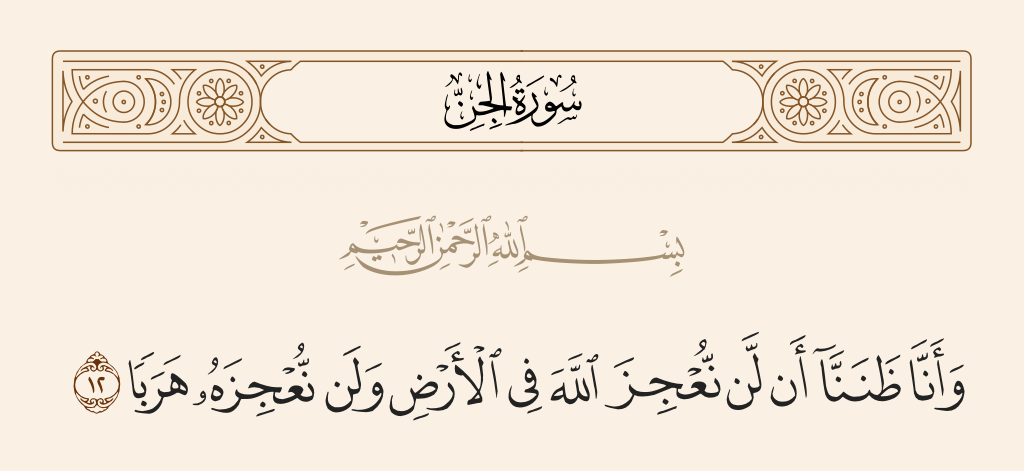 سُورَةُ الجِنِّ
بِسْمِ ٱللَّهِ ٱلرَّحْمَٰنِ ٱلرَّحِيمِ
وَأَنَّا ظَنَنَّآ أَن لَّن نُّعْجِزَ ٱللَّهَ فِى ٱلْأَرْضِ وَلَن نُّعْجِزَهُۥ هَرَبًا ١٢